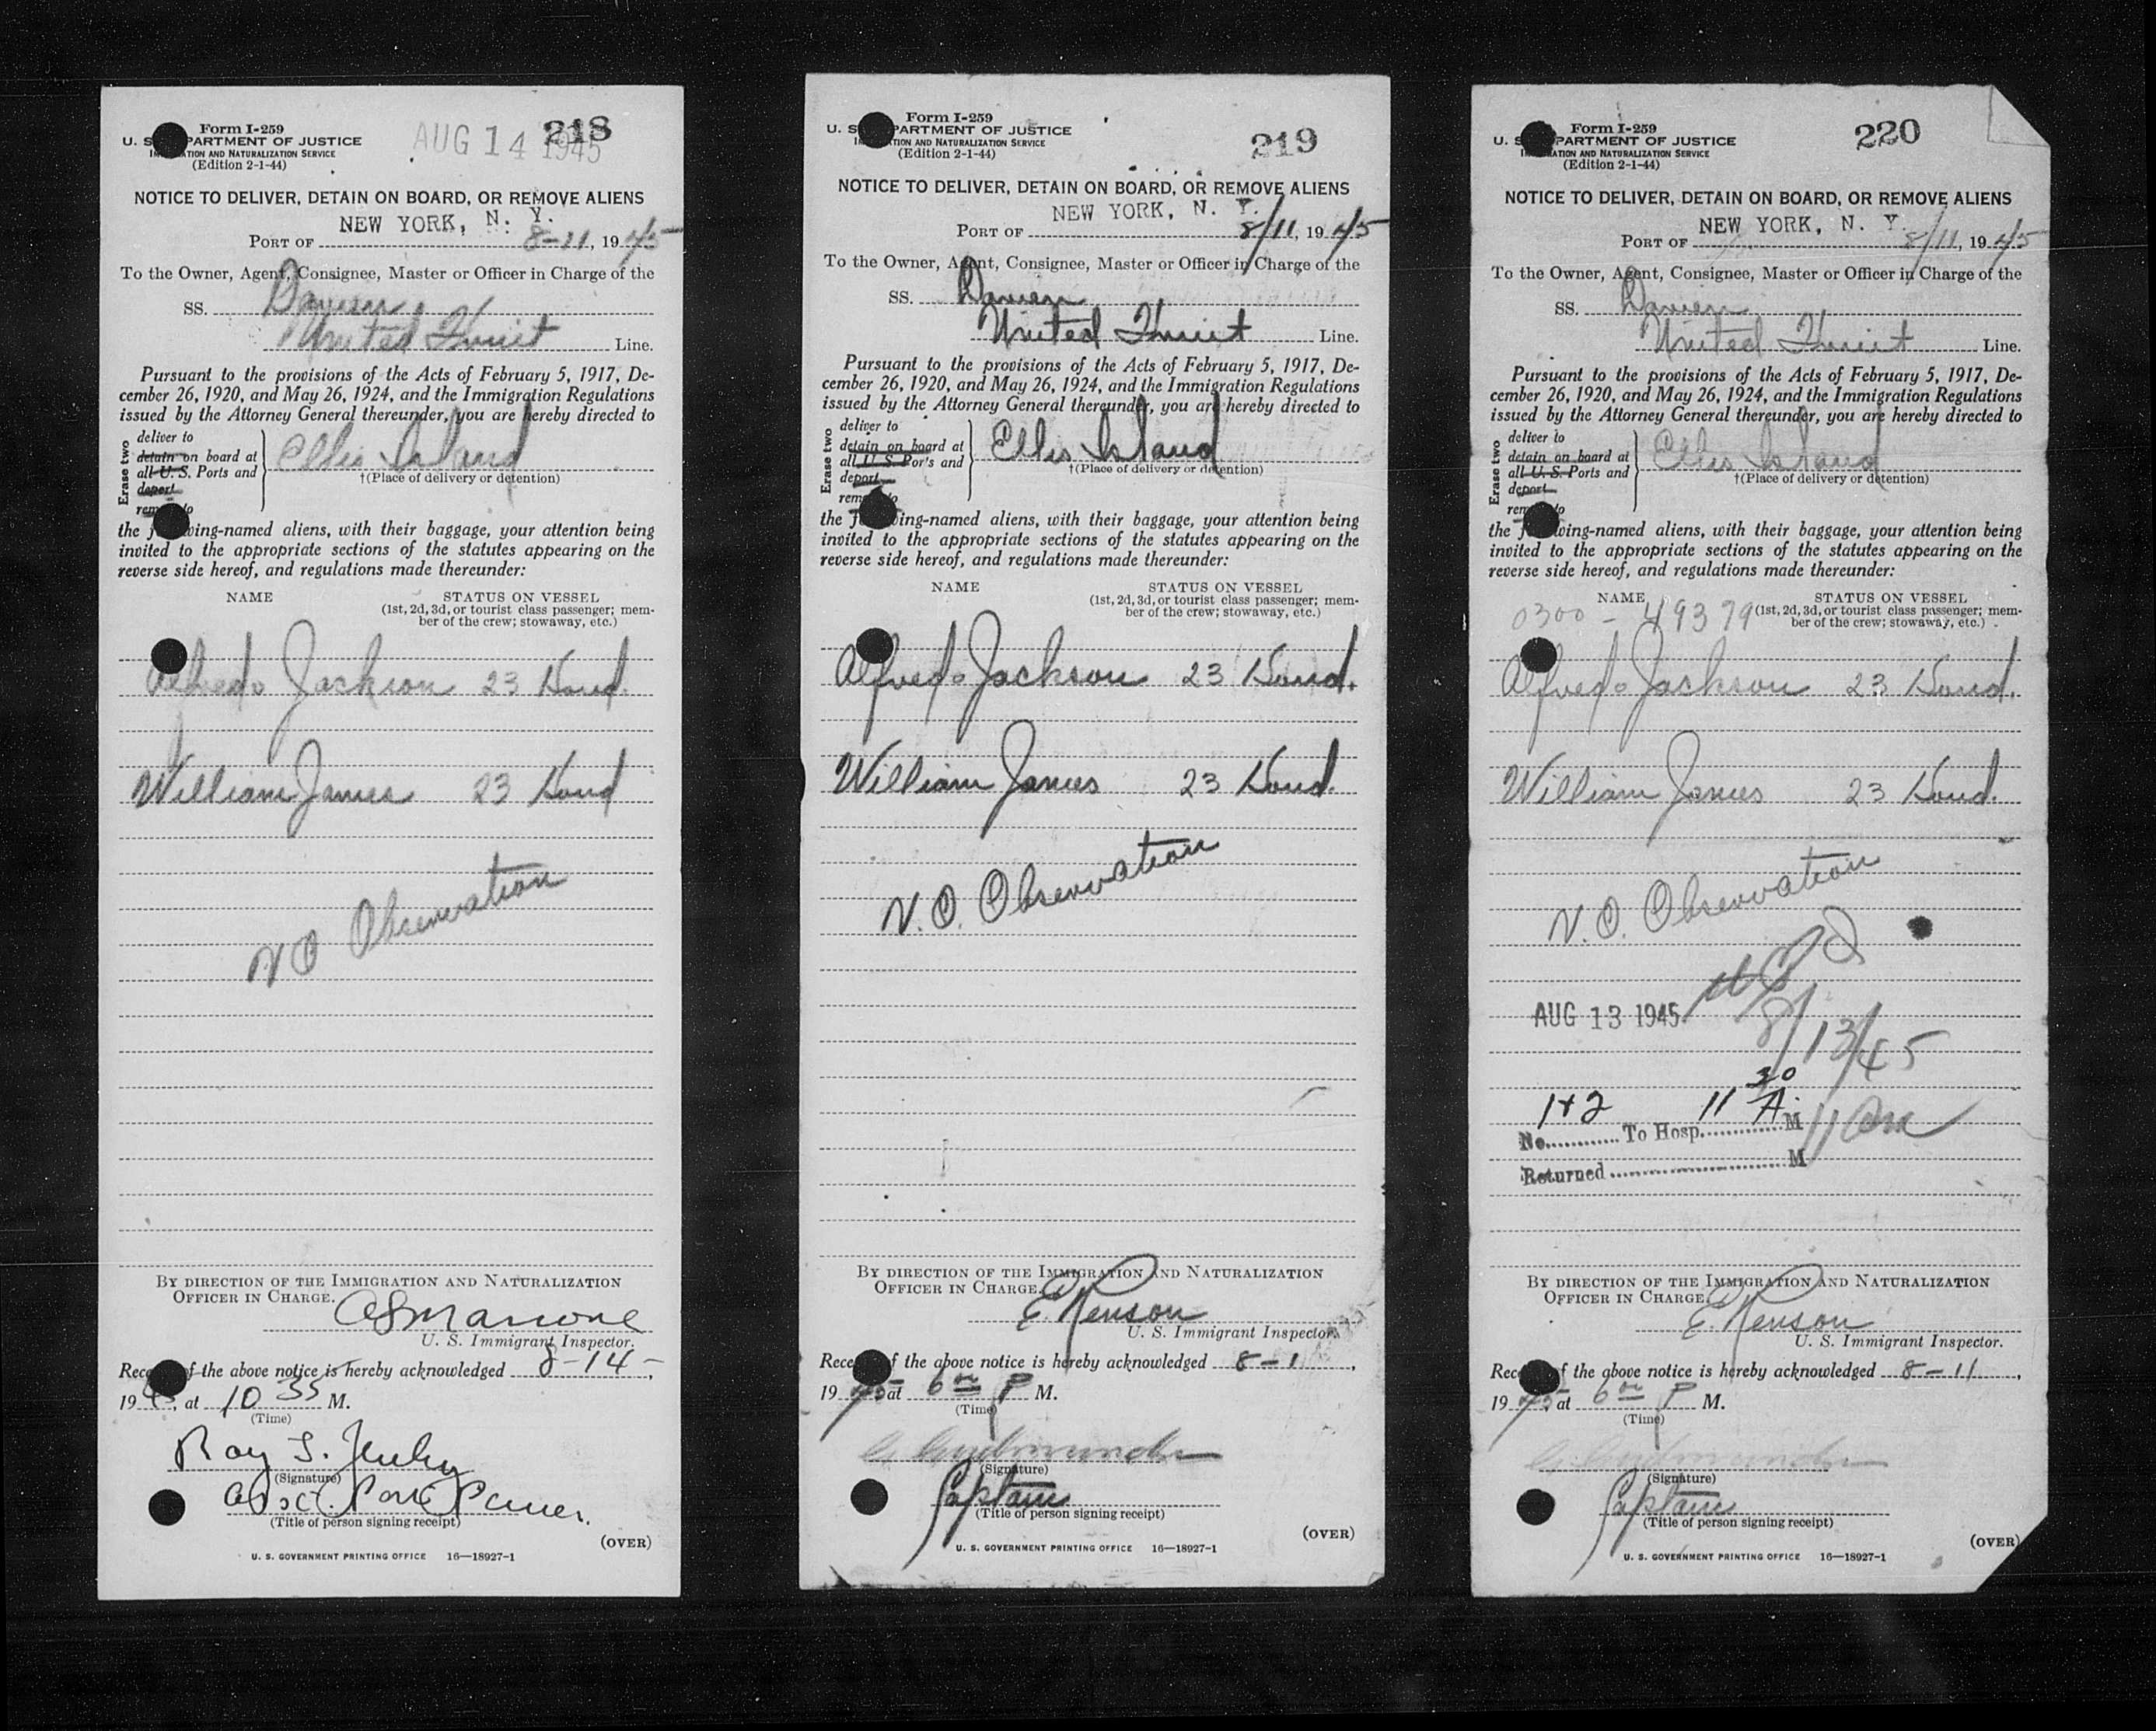 Form I-259
U. S. DEPARTMENT OF JUSTICE
IMMIGRATION AND NATURALIZATION SERVICE
(Edition 2-1-44)
AUG 14 1945
218
NOTICE TO DELIVER, DETAIN ON BOARD, OR REMOVE ALIENS
NEW YORK, N. Y.
PORT OF 8-11, 1945
To the Owner, Agent, Consignee, Master or Officer in Charge of the
SS. Darien
United Fruit Line.
Pursuant to the provisions of the Acts of February 5, 1917, De-
cember 26, 1920, and May 26, 1924, and the Immigration Regulations
issued by the Attorney General thereunder, you are hereby directed to
Erase two
deliver to
detain on board at
all U. S. Ports and
deport
remove to
Ellis Island
†(Place of delivery or detention)
the following-named aliens, with their baggage, your attention being
invited to the appropriate sections of the statutes appearing on the
reverse side hereof, and regulations made thereunder:
NAME STATUS ON VESSEL
(1st, 2d, 3d, or tourist class passenger; mem-
ber of the crew; stowaway, etc.)
Alfredo Jackson 23 Hond.
William James 23 Hond
V O Observation
BY DIRECTION OF THE IMMIGRATION AND NATURALIZATION
OFFICER IN CHARGE.
U. S. Immigrant Inspector.
Receipt of the above notice is hereby acknowledged 8-14-,
1945, at 10 35 M.
(Time)
Roy
(Signature)
(Title of person signing receipt)
(OVER)
U. S. GOVERNMENT PRINTING OFFICE 16—18927-1
Form I-259
U. S. DEPARTMENT OF JUSTICE
IMMIGRATION AND NATURALIZATION SERVICE
(Edition 2-1-44)
219
NOTICE TO DELIVER, DETAIN ON BOARD, OR REMOVE ALIENS
NEW YORK, N. Y.
PORT OF 8/11, 1945
To the Owner, Agent, Consignee, Master or Officer in Charge of the
SS. Darien
United Fruit Line.
Pursuant to the provisions of the Acts of February 5, 1917, De-
cember 26, 1920, and May 26, 1924, and the Immigration Regulations
issued by the Attorney General thereunder, you are hereby directed to
Erase two
deliver to
detain on board at
all U. S. Por's and
deport
remove to
Ellis Island
†(Place of delivery or detention)
the following-named aliens, with their baggage, your attention being
invited to the appropriate sections of the statutes appearing on the
reverse side hereof, and regulations made thereunder:
NAME STATUS ON VESSEL
(1st, 2d, 3d, or tourist class passenger; mem-
ber of the crew; stowaway, etc.)
Alfredo Jackson 23 Hond.
William James 23 Hond.
V. O. Observation
BY DIRECTION OF THE IMMIGRATION AND NATURALIZATION
OFFICER IN CHARGE.
E. Renson
U. S. Immigrant Inspector.
Receipt of the above notice is hereby acknowledged 8-1,
1945 at 6 00 P M.
(Time)
(Signature)
Captain
(Title of person signing receipt)
(OVER)
U. S. GOVERNMENT PRINTING OFFICE 16—18927-1
Form I-259
U. S. DEPARTMENT OF JUSTICE
IMMIGRATION AND NATURALIZATION SERVICE
(Edition 2-1-44)
220
NOTICE TO DELIVER, DETAIN ON BOARD, OR REMOVE ALIENS
NEW YORK, N. Y.
PORT OF 8/11, 1945
To the Owner, Agent, Consignee, Master or Officer in Charge of the
SS. Darien
United Fruit Line.
Pursuant to the provisions of the Acts of February 5, 1917, De-
cember 26, 1920, and May 26, 1924, and the Immigration Regulations
issued by the Attorney General thereunder, you are hereby directed to
Erase two
deliver to
detain on board at
all U. S. Ports and
deport
remove to
Ellis Island
†(Place of delivery or detention)
the following-named aliens, with their baggage, your attention being
invited to the appropriate sections of the statutes appearing on the
reverse side hereof, and regulations made thereunder:
NAME STATUS ON VESSEL
0300 - 49379 (1st, 2d, 3d, or tourist class passenger; mem-
ber of the crew; stowaway, etc.)
Alfredo Jackson 23 Hond.
William James 23 Hond.
V. O. Observation
AUG 13 1945
8/13/45
11 am
No. 1+2 To Hosp. 11 30 A. M
Returned M
BY DIRECTION OF THE IMMIGRATION AND NATURALIZATION
OFFICER IN CHARGE.
E. Renson
U. S. Immigrant Inspector.
Receipt of the above notice is hereby acknowledged 8-11,
1945, at 6 00 P M.
(Time)
(Signature)
Captain
(Title of person signing receipt)
(OVER)
U. S. GOVERNMENT PRINTING OFFICE 16—18927-1